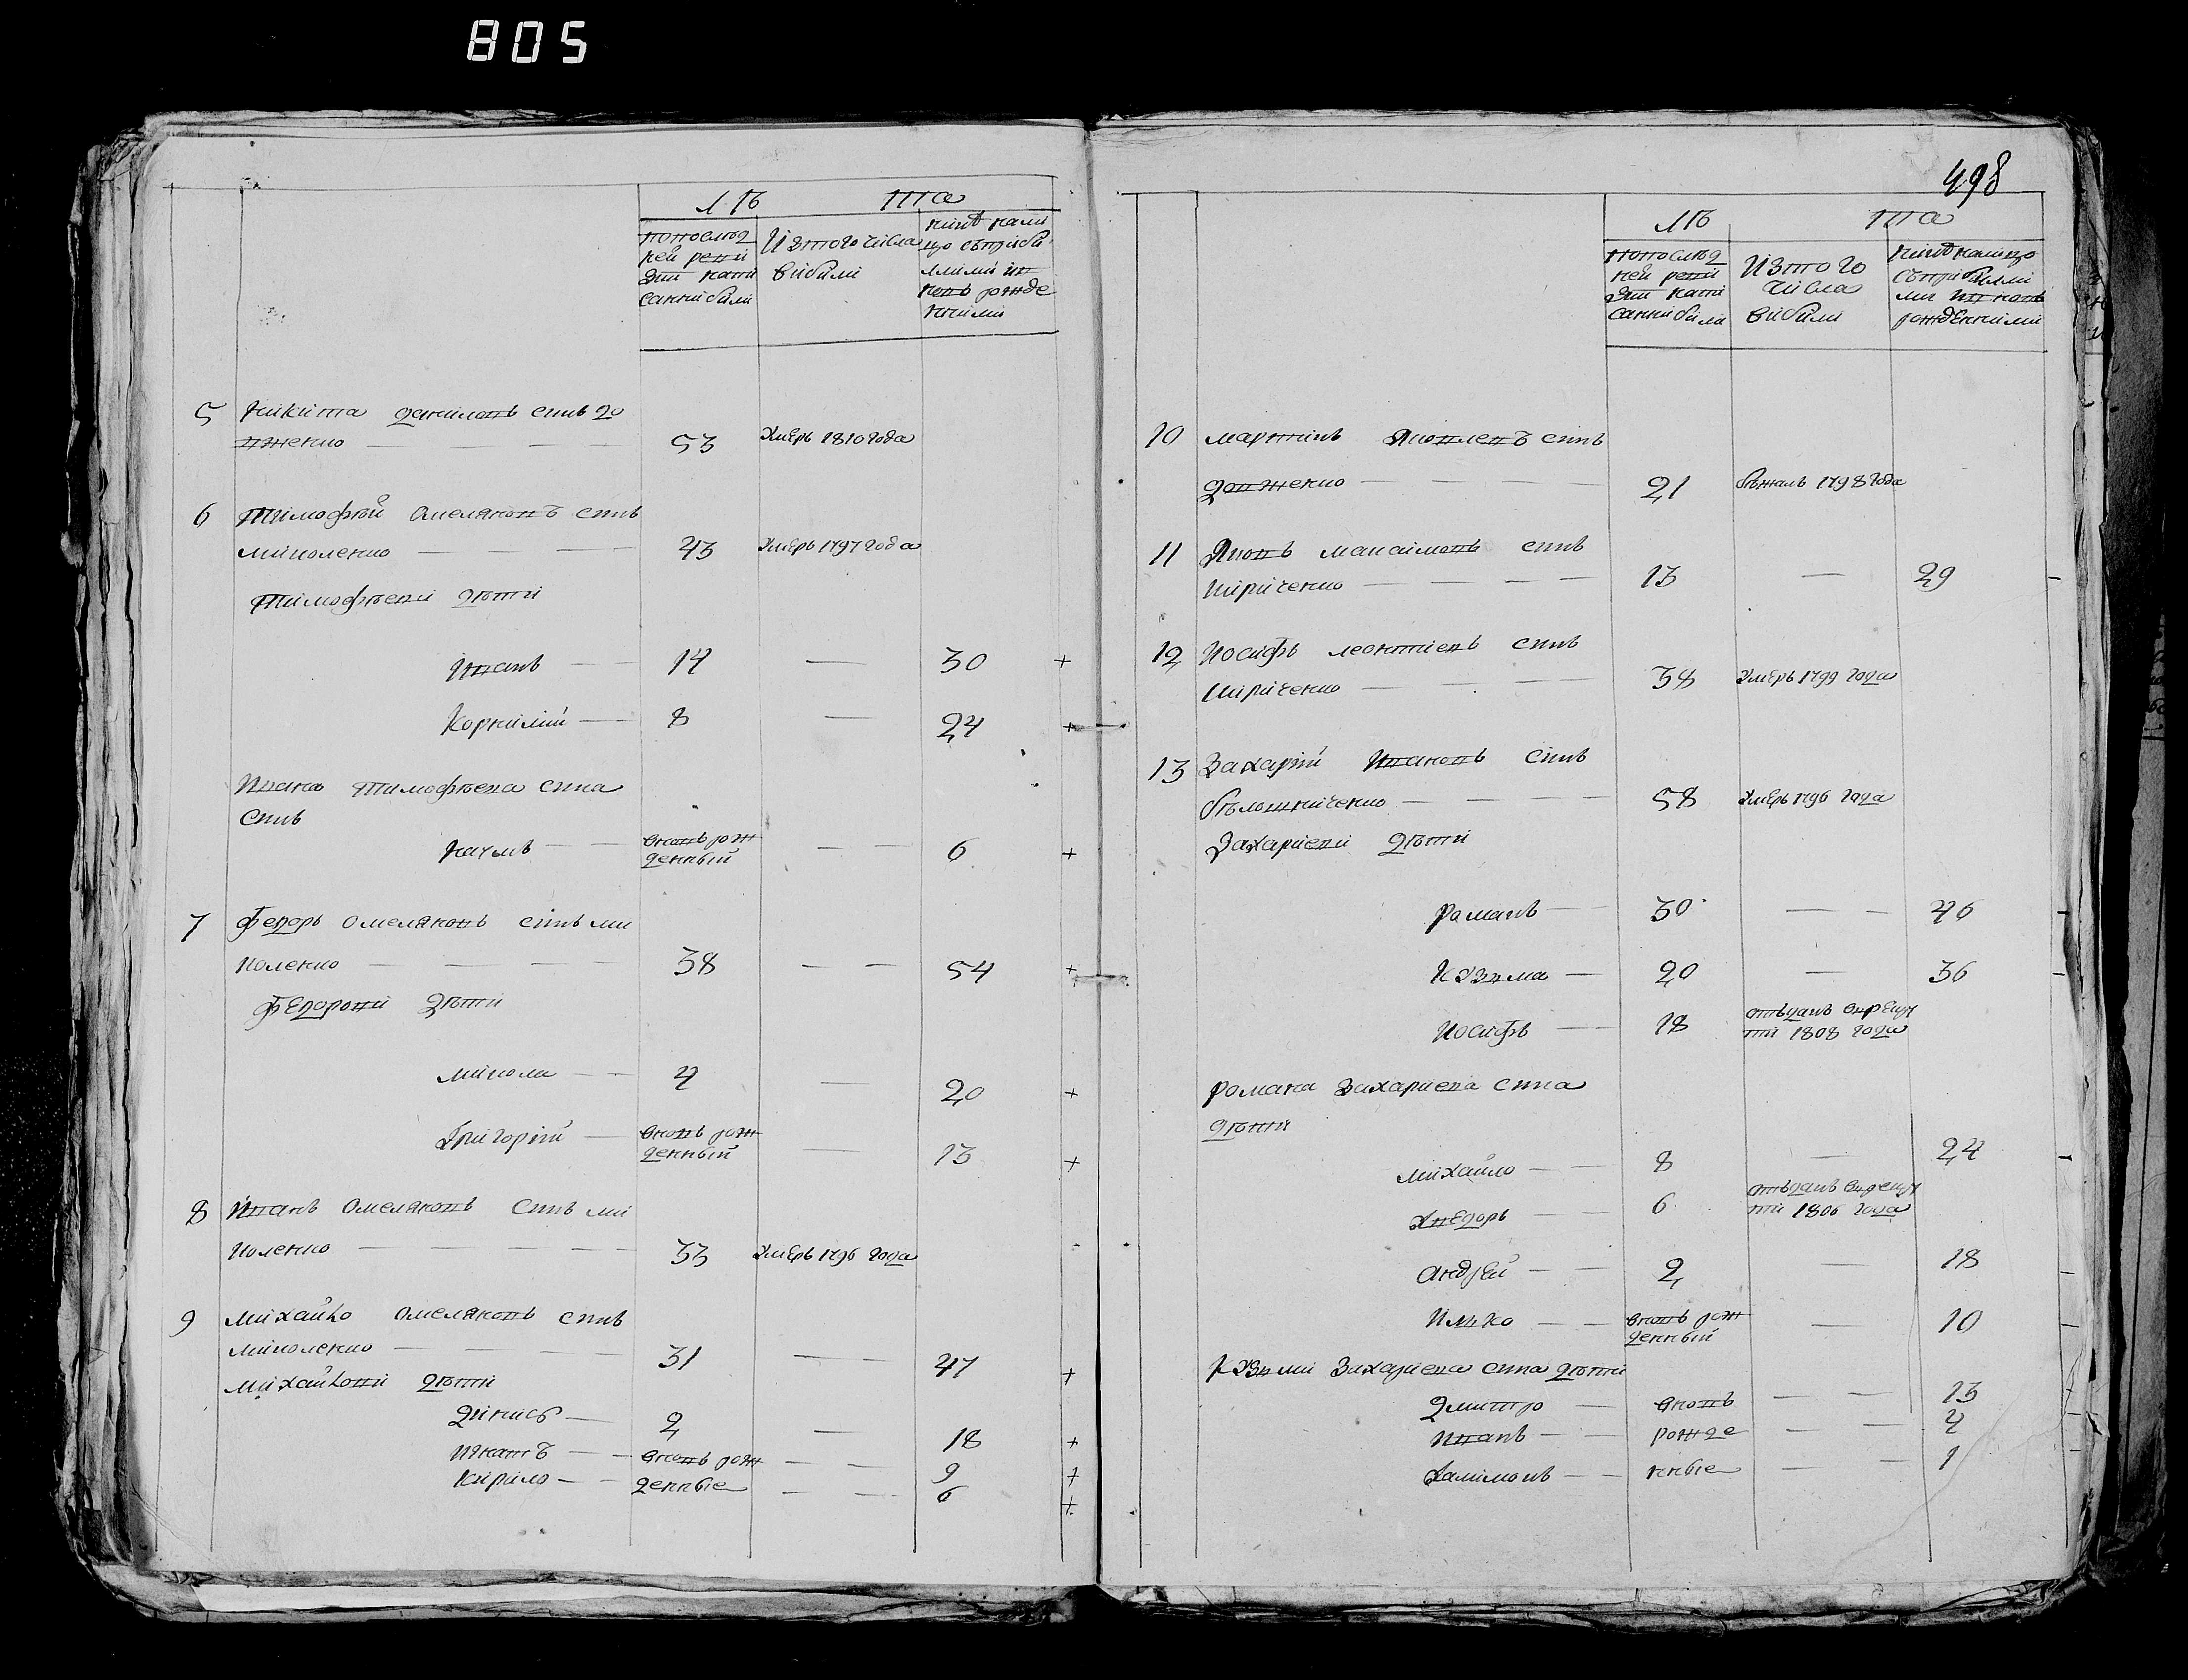 805
ЛѢ та
по послѣд
ней реви
зіи напи
санни були
Изтого числа
вибили
нинѣ нали
цо съприби
лими и в
новь рожде
нними
5 Никита даниловъ синъ до
вженко — — — 53 Умеръ 1810 года
6 Тимофѣй Омеляновъ синъ
миколенко — — — 43 Умеръ 1797 года
Тимофѣеви дѣти
Иванъ — 14 — 30 +
Корнилій — 8 — 24 +
Ивана Тимофѣева сина
синъ
Наумъ — — вновь рож
денный — — 6 +
7 Федоръ Омеляновъ синъ ми
коленко — — — — 38 — — 54 +
Федорови дѣти
микола — — 4 — 20 +
Григорій — вновь рож
денный — 13 +
8 Иванъ Омеляновъ синъ ми
коленко — — — — — 33 Умеръ 1796 года
9 Михайло Омеляновъ синъ
миколенко — — — — 31 — — 47 +
Михайлови дѣти
Динисъ — 2 — 18 +
Игнатъ — — вновь рож — — 9 +
Кирило — — денные — — 6 +
498
ЛѢ та
по послѣд
ней реви
зіи напи
санни були
Изтого
числа
вибили
нинѣ налицо
съприбили
ми и вновь
рожденними
10 мартинъ Яковлевъ синъ
Довженко — — — 21 бѣжалъ 1798 года
11 Яковъ макаимовъ синъ
Кириченко — — — — 13 — 29
12 Иосифъ леонтіевъ синъ
Кириченко — — — — 38 Умеръ 1799 года
13 Захарій Ивановъ синъ
бѣлошниченко — — — — 58 Умеръ 1796 года
Захариеви дѣти
Романъ — 30 — — 46
Кузма — 20 — 36
Иосифъ — 18 отъданъ врекру
ти 1808 года
Романа Захариева сина
дѣти
михайло — — 8 — 24
Хведоръ — — 6 отъданъ врекру
ти 1806 года
андрей — — 2 — 18
Илько — — вновь рож
денный — 10
Кузми Захариева сина дѣти
Дмитро — вновь — — 13
Иванъ — — рожде — — 4
Халимонъ — — нные — — 1